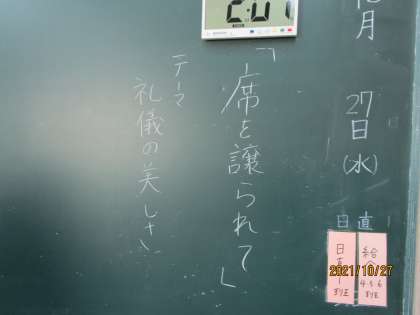 月
27
日
(水)
日直
「席を譲られて」
テーマ
礼儀の美しさ
日直
給食
4.5.6
2021/10/27